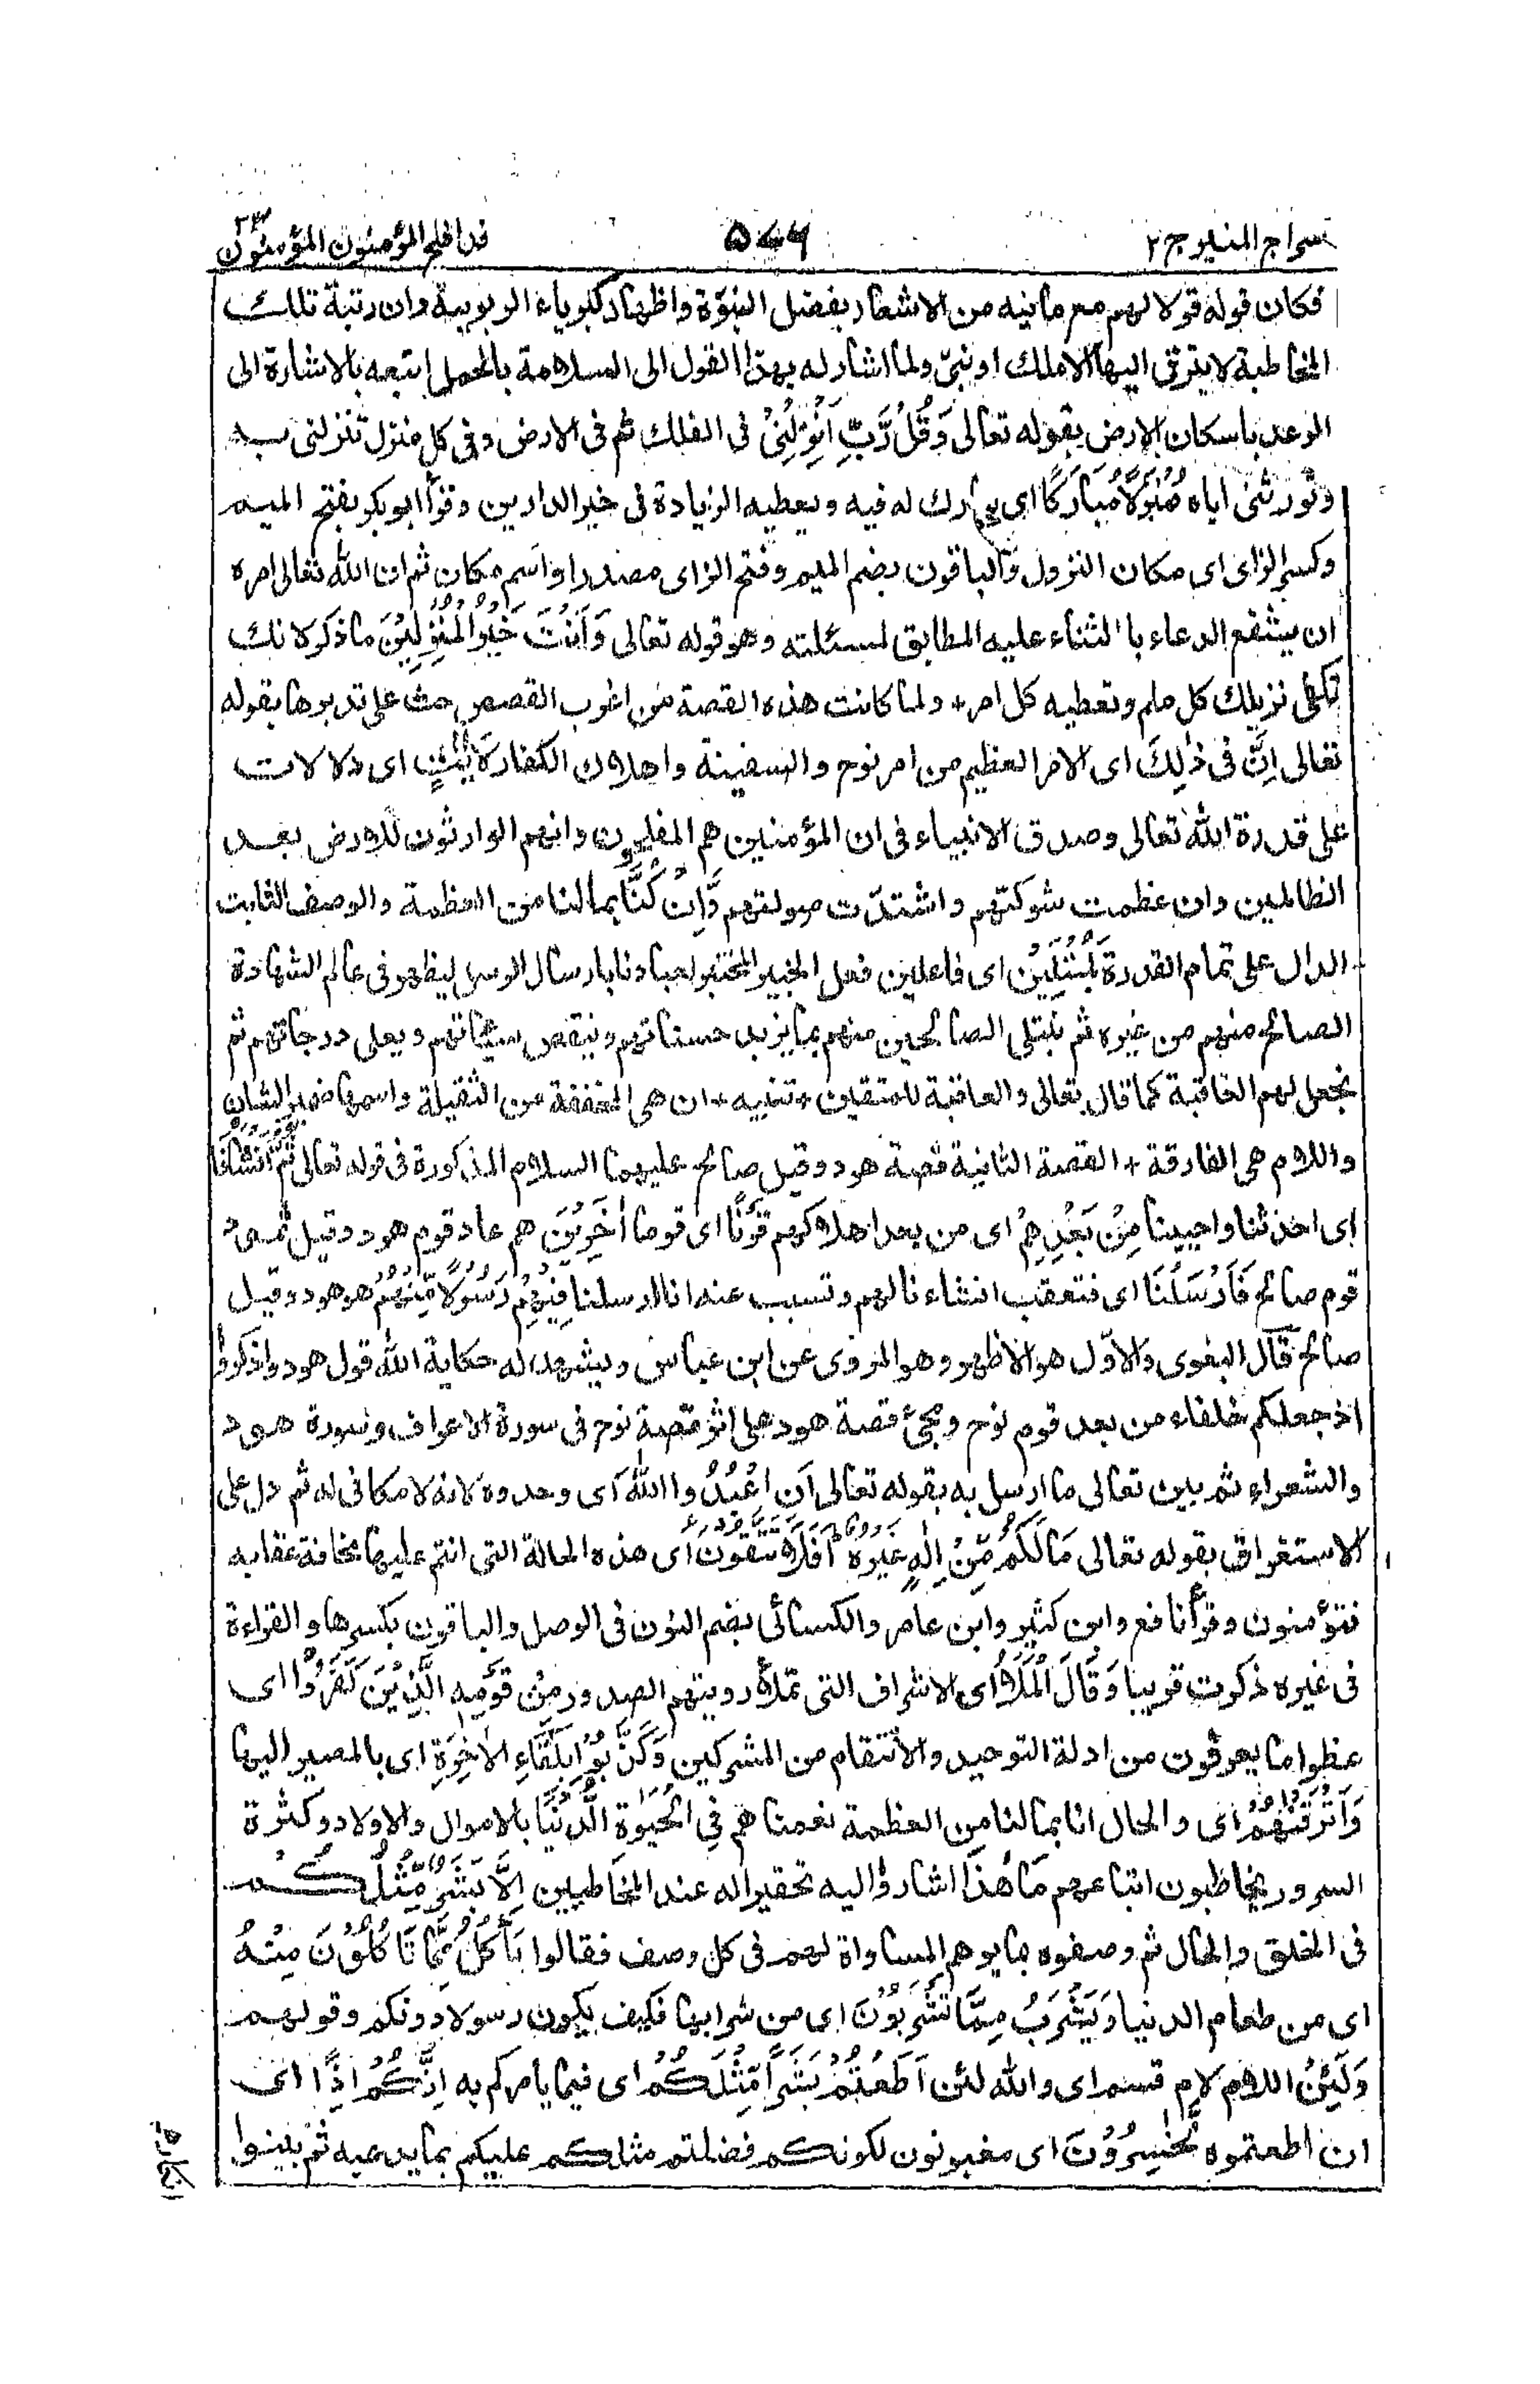 سراج المنير ج ٢
٥٧٦
قد افلح المؤمنون المؤمنون ٢٣
فكان قوله قولا لهم مع ما فيه من الاشعار بفضل النبوّة واظهار كبرياء الربوبية وان رتبة تلك
المخاطبة لا يترقى اليها الا ملك او نبىّ ولما اشار له بهذا القول الى السلامة بالحمل اتبعه بالاشارة الى
الوعد باسكان الارض بقوله تعالى وَقُلْ رَّبِّ اَنْزِلْنِىْ فى الفلك ثم فى الارض وفى كل منزل تنزلنى به
وتورثنى اياه مُنْزَلًا مُّبٰرَكًا اى يبارك له فيه ويعطيه الزيادة فى خير الدارين وقرأ ابو بكر بفتح الميم
وكسر الزاى اى مكان النزول والباقون بضم الميم وفتح الزاى مصدر او اسم مكان ثم ان الله تعالى امره
ان يشفع الدعاء بالثناء عليه المطابق لمسئلته وهو قوله تعالى وَاَنْتَ خَيْرُ الْمُنْزِلِيْنَ ما ذكر لانك
تكفى نزيلك كل ملم وتعطيه كل امر + ولما كانت هذه القصة من اغرب القصص حث على تدبرها بقوله
تعالى اِنَّ فِىْ ذٰلِكَ اى الامر العظيم من امر نوح والسفينة واهلاك الكفار لَاٰيٰتٍ اى دلالات
على قدرة الله تعالى وصدق الانبياء فى ان المؤمنين هم المفلحون وانهم الوارثون للارض بعد
الظالمين وان عظمت شوكتهم واشتدّت صولتهم وَّاِنْ كُنَّا بما لنا من العظمة والوصف الثابت
الدال على تمام القدرة لَمُبْتَلِيْنَ اى فاعلين فعل الخبير المختبر لعبادنا بارسال الرسل ليظهر فى عالم الشهادة
الصالح منهم من غيره ثم نبتلى الصالحين منهم بما يزيد حسناتهم وينقص سيئاتهم ويعلى درجاتهم ثم
نجعل لهم العاقبة كما قال تعالى والعاقبة للمتقين + تنبيه + ان هى المخففة من الثقيلة واسمها ضمير الشان
واللام هى الفارقة + القصة الثانية قصة هود وقيل صالح عليهما السلام المذكورة فى قوله تعالى ثُمَّ اَنْشَاْنَا
اى احدثنا واحيينا مِنْۢ بَعْدِهِمْ اى من بعد اهلاكهم قَرْنًا اى قوما اٰخَرِيْنَ هم عاد قوم هود وقيل ثمود
قوم صالح فَاَرْسَلْنَا اى فتعقب انشاءنا لهم وتسبب عنه انا ارسلنا فِيْهِمْ رَسُوْلًا مِّنْهُمْ هو هود وقيل
صالح قال البغوى والاوّل هو الاظهر وهو المروى عن ابن عباس ويشهد له حكاية الله قول هود واذكروا
اذ جعلكم خلفاء من بعد قوم نوح ومجئ قصة هود على اثر قصة نوح فى سورة الاعراف وسورة هود
والشعراء ثم بين تعالى ما ارسل به بقوله تعالى اَنِ اعْبُدُوا اللهَ اى وحدوه لانه لا مكافى له ثم دل على
الاستغراق بقوله تعالى مَا لَكُمْ مِّنْ اِلٰهٍ غَيْرُهٗ اَفَلَا تَتَّقُوْنَ اى هذه الحالة التى انتم عليها مخافة عقابه
فتؤمنون وقرأ نافع وابن كثير وابن عامر والكسائى بضم النون فى الوصل والباقون بكسرها والقراءة
فى غيره ذكرت قريبا وَقَالَ الْمَلَاُ اى الاشراف التى تملأ رؤيتهم الصدور مِنْ قَوْمِهِ الَّذِيْنَ كَفَرُوْا اى
غطوا ما يعرفون من ادلة التوحيد والانتقام من المشركين وَكَذَّبُوْا بِلِقَاءِ الْاٰخِرَةِ اى بالمصير اليها
وَاَتْرَفْنٰهُمْ اى والحال انا بما لنا من العظمة نعمناهم فِى الْحَيٰوةِ الدُّنْيَا بالاموال والاولاد وكثرة
السرور يخاطبون اتباعهم مَا هٰذَا اشاروا اليه تحقيرا له عند المخاطبين اِلَّا بَشَرٌ مِّثْلُكُمْ
فى الخلق والحال ثم وصفوه بما يوهم المساواة لهم فى كل وصف فقالوا يَاْكُلُ مِمَّا تَاْكُلُوْنَ مِنْهُ
اى من طعام الدنيا وَيَشْرَبُ مِمَّا تَشْرَبُوْنَ اى من شرابها فكيف يكون رسولا دونكم وقولهم
وَلَئِنْ اللام لام قسم اى والله لئن اَطَعْتُمْ بَشَرًا مِّثْلَكُمْ اى فيما يامركم به اِنَّكُمْ اِذًا اى
ان اطعتموه لَّخٰسِرُوْنَ اى مغبونون لكونكم فضلتم مثلكم عليكم بما يدعيه ثم بينوا
انكارهم